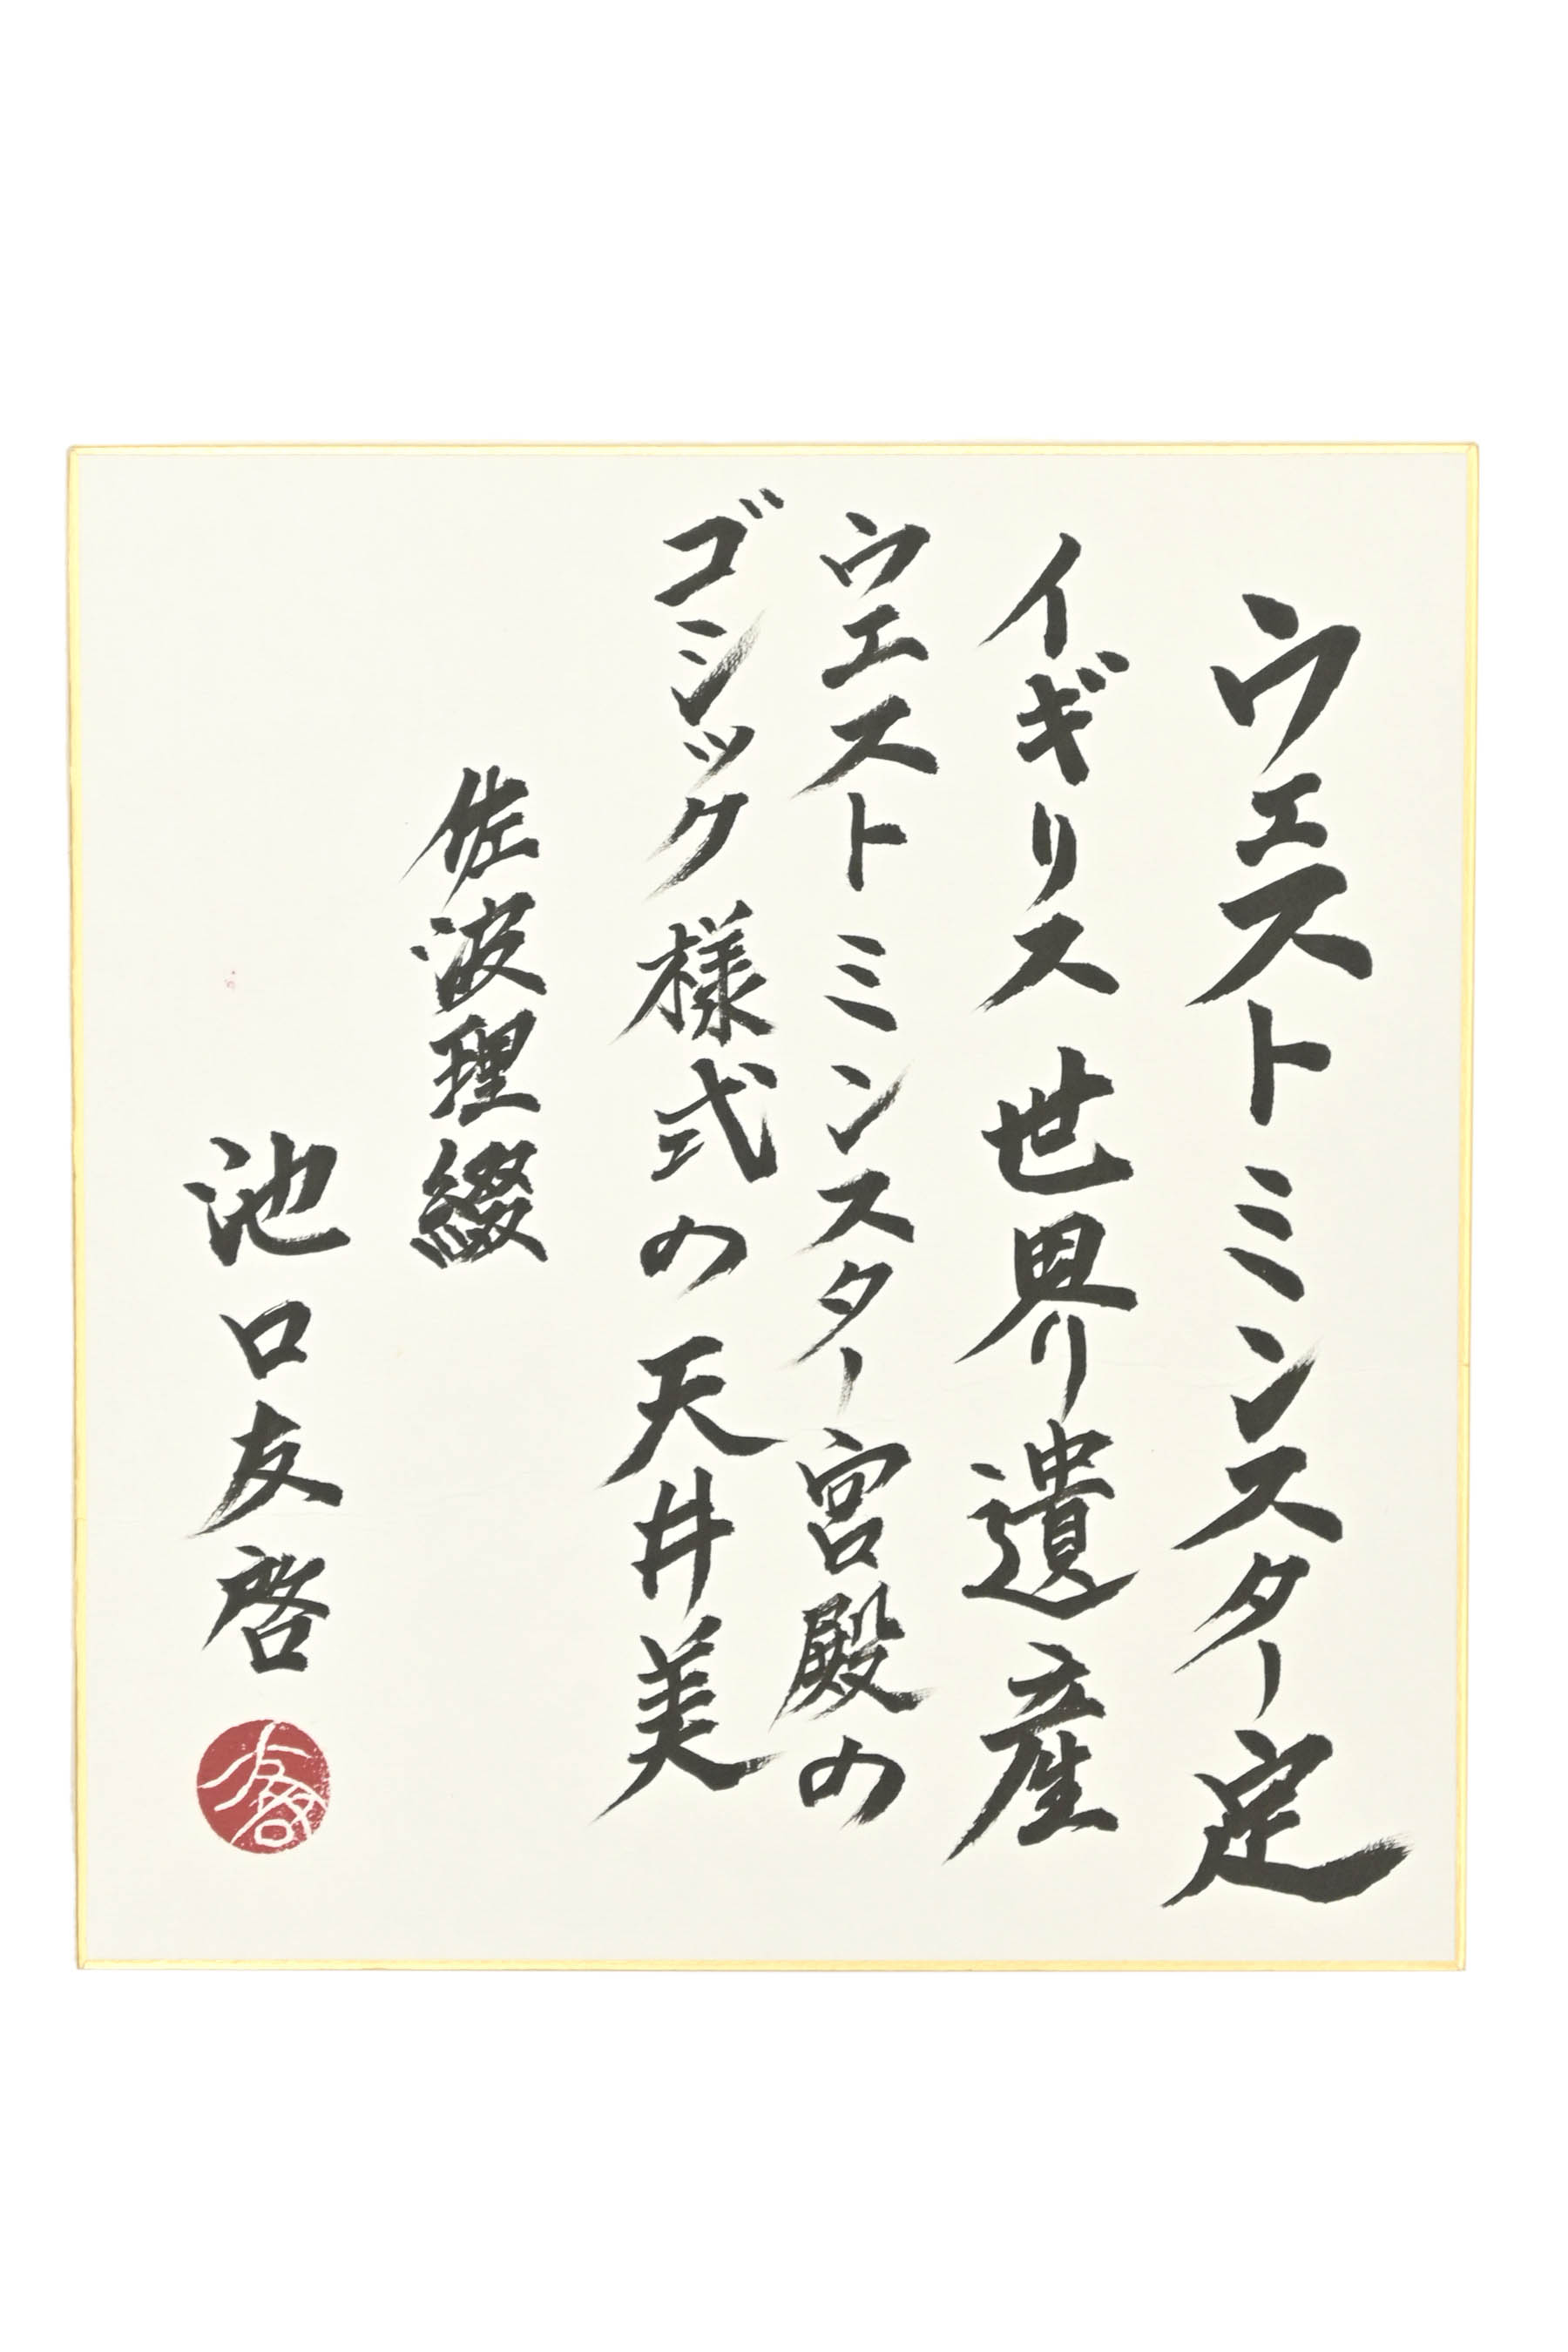 ウェストミンスター定
イギリス世界遺産
ウエストミンスター宮殿の
ゴシック様式の天井美
佐波理綴
池口友啓